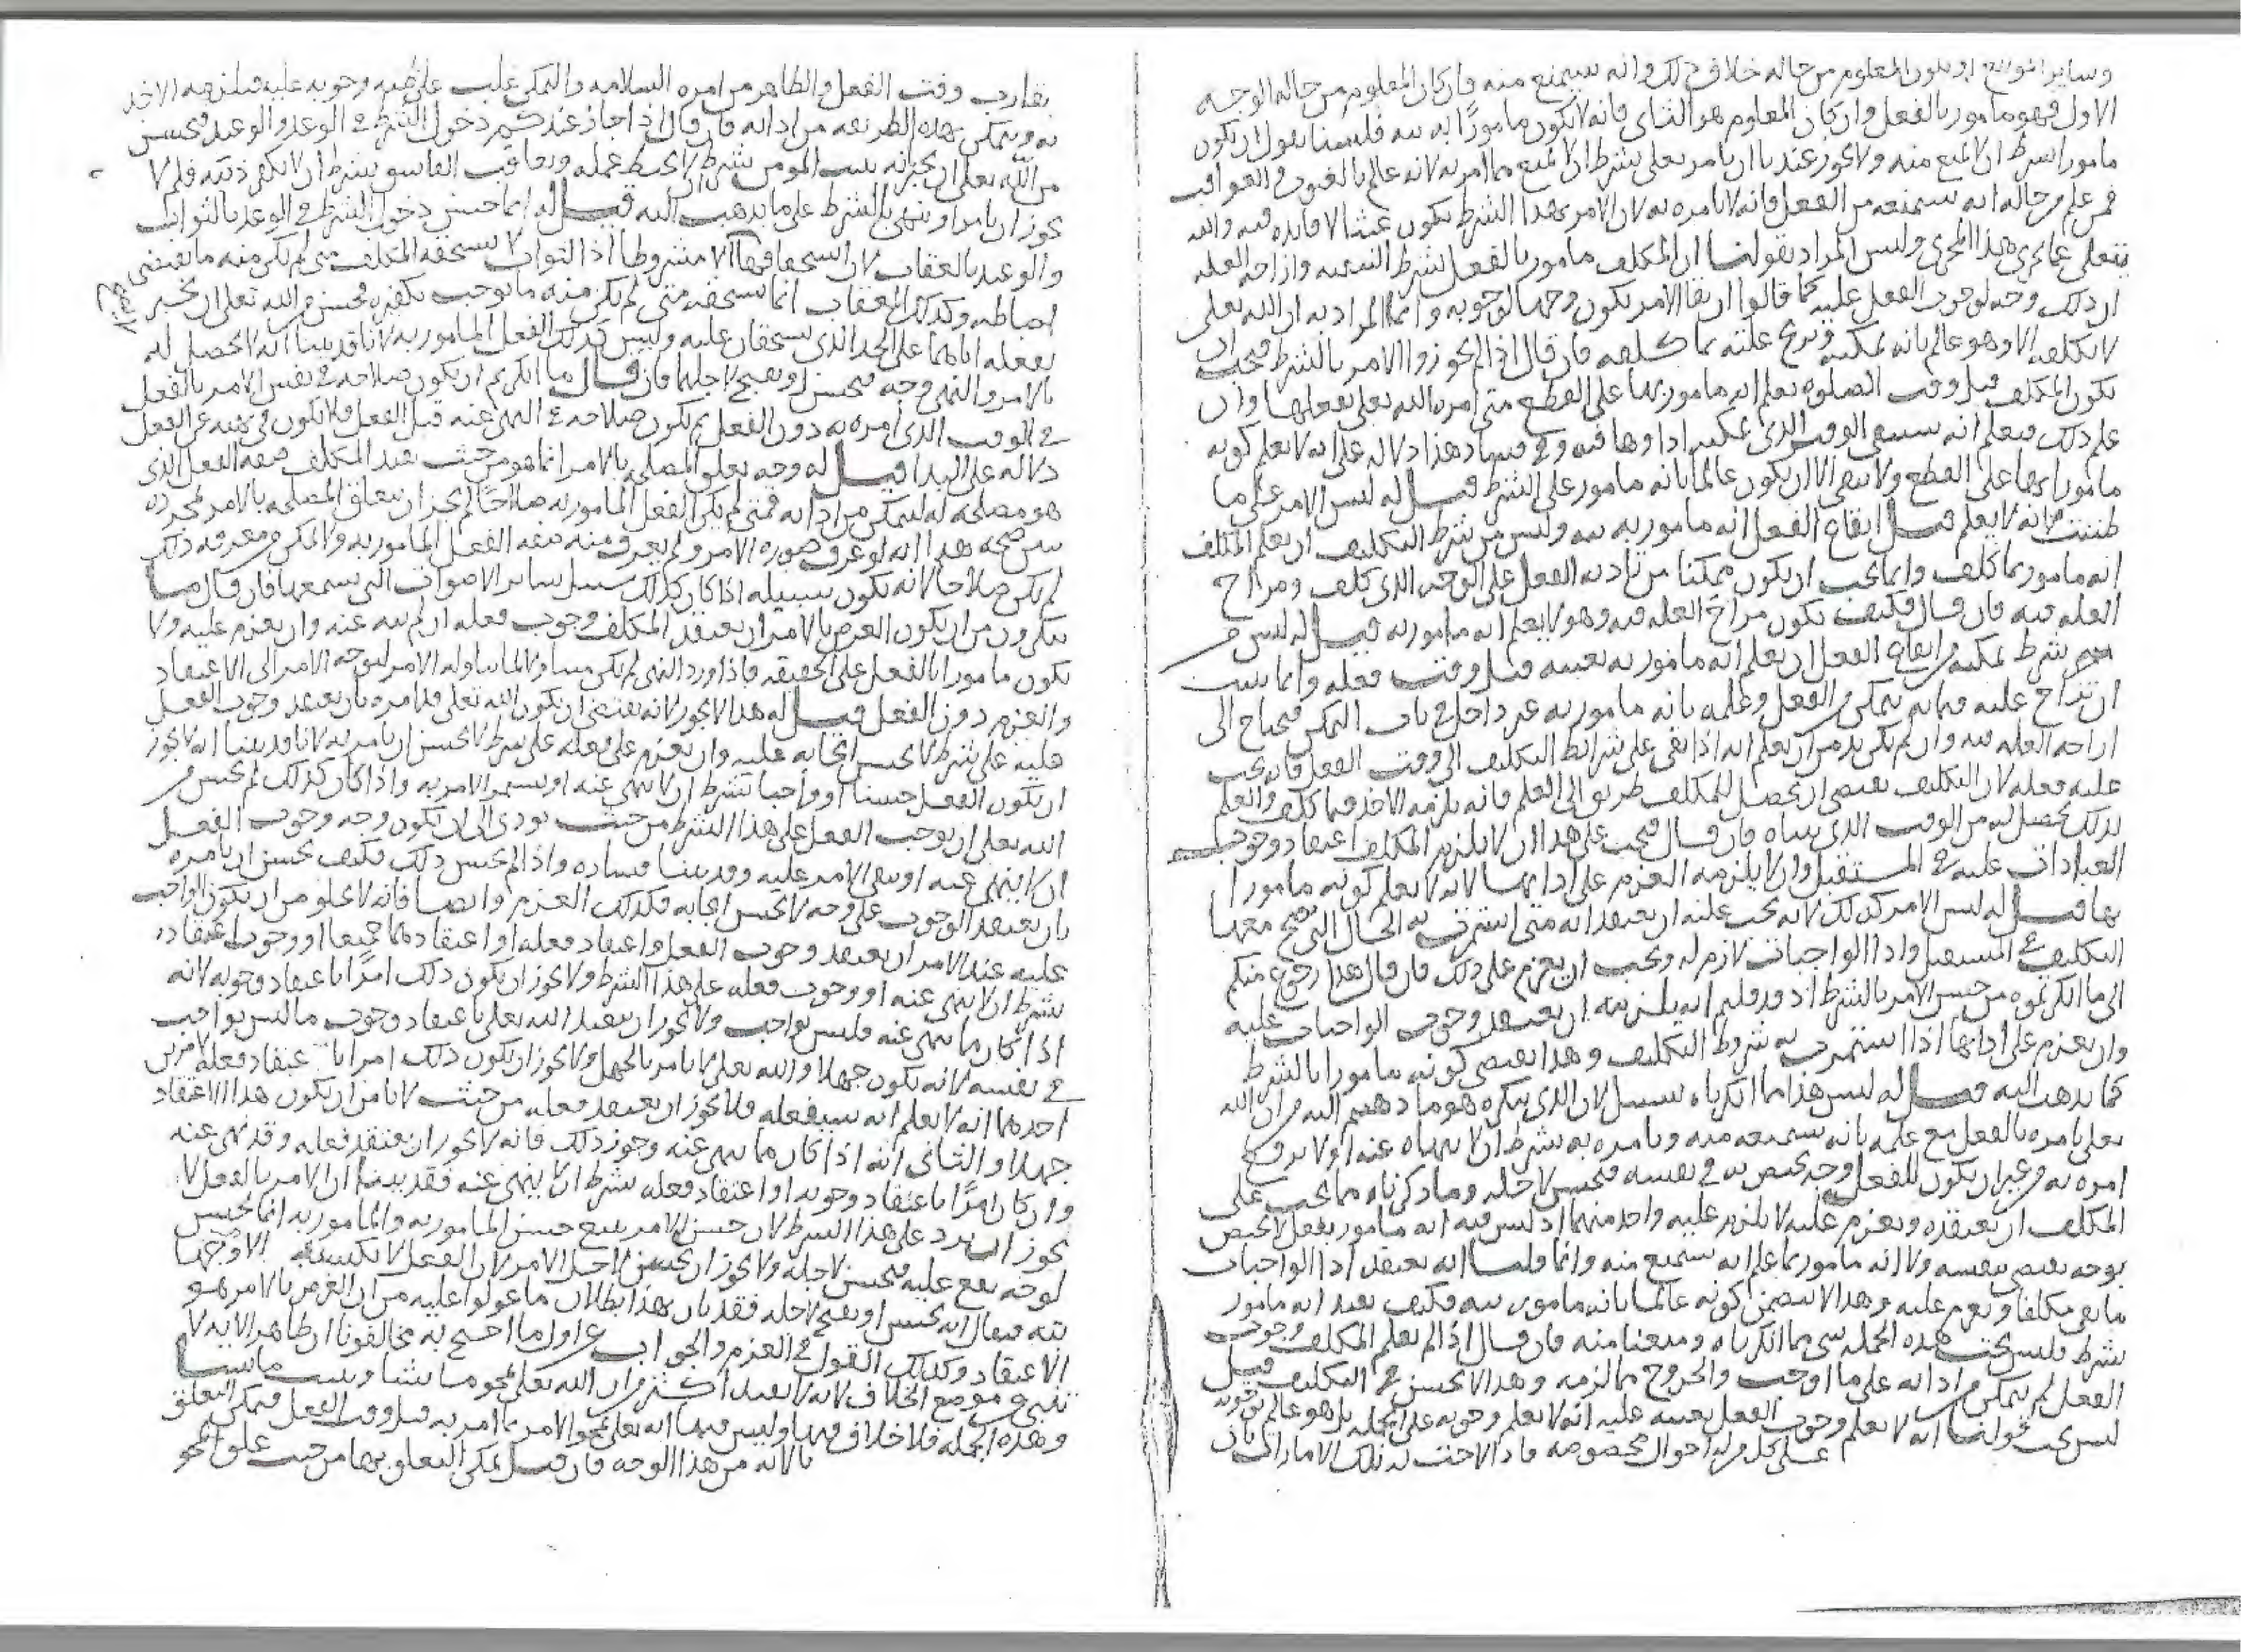 وساير الموانع او يكون المعلوم من حاله خلاف ذلك وانه سيمنع منه فان كان المعلوم من حاله الوجه
الاول فهو مامور بالفعل وان كان المعلوم هو الثاني فانه لا يكون مامورًا به فلسنا نقول ان يكون
مامورا بشرط ان لا يمنع منه ولا يجوز عندنا ان يامر تعلى بشرط ان لا يمنع مما امر به لانه عالم بالغيوب والعواقب
فمن علم من حاله انه سيمنعه من الفعل فانه لا يامره به لان الامر بهذا الشرط يكون عبثا لا فايده فيه والله
يتعلى عما يجري هذا المجرى وليس المراد بقولنا ان المكلف مامور بالفعل بشرط التبقيه وازاحه العله
ان ذلك وجه لوجوب الفعل عليه كما قالوا ان بقا الامر يكون وجها لوجوبه وانما المراد به ان الله تعلى
لا يكلفه الا وهو عالم بانه يمكنه ويزيح علته بما كلفه فان قال اذا لم تجوزوا الامر بالشرط فيجب ان
يكون المكلف قبل وقت الصلوه يعلم انه مامور بها على القطع متى امره الله تعلى بفعلها وان
علم ذلك فيعلم انه سيبقى الوقت الذي يمكنه اداوها فيه وفي فساد هذا دلاله على انه لا يعلم كونه
مامورا بها على القطع ولا يبقى الا ان يكون عالما بانه مامور على الشرط قيل له ليس الامر على ما
ظننت لانه لا يعلم قبل ايقاع الفعل انه مامور به وليس من شرط التكليف ان يعلم المكلف
انه مامور بما كلف وانما يجب ان يكون ممكنا من تاديه الفعل على الوجه الذي كلف ومزاح
العله فيه فان قال فكيف يكون مزاح العله فيه وهو لا يعلم انه مامور به قيل له ليس من
شرط تمكنه من ايقاع الفعل ان يعلم انه مامور به بعينه قبل وقت فعله وانما يجب
ان تزاح عليه فيما به يتمكن من الفعل وعلمه بانه مامور به غير داخل في باب التمكن فيحتاج الى
ازاحه العله فيه وان لم يكن بد من ان يعلم انه اذا بقى على شرايط التكليف الى وقت الفعل فانه يجب
عليه فعله لان التكليف يقتضي ان يحصل للمكلف طريق الى العلم فانه يلزمه الاخذ فيما كلف والعلم
بذلك يحصل له من الوقت الذي بيناه فان قال فيجب على هذا ان لا يلزم المكلف اعتقاد وجوب
العبادات عليه في المستقبل وان لا يلزمه العزم على ادايها لانه لا يعلم كونه مامورا
بها قيل له ليس الامر كذلك لانه يجب عليه ان يعتقد انه متى استمرت به الحال التي يصح معها
التكليف في المستقبل وادا الواجبات لازم له ويجب ان يعزم على ذلك فان قال هذا رجوع منكم
الى ما انكرتموه من حسن الامر بالشرط اذ قد قلتم انه يلزمه ان يعتقد وجوب الواجبات عليه
وان يعزم على ادايها اذا استمرت به شروط التكليف وهذا يقتضي كونه مامورا بالشرط
كما نذهب اليه قيل له ليس هذا مما انكرناه بسبيل لان الذي ننكره هو ما ذهبتم اليه من ان الله
تعلى يامره بالفعل مع علمه بانه سيمنعه منه ويامره به بشرط ان لا ينهاه عنه او لا يرفع
امره به من غير ان يكون للفعل وجه يختص به في نفسه فيحسن لاجله وما ذكرناه مما يجب على
المكلف ان يعتقده ويعزم عليه لا يلزم عليه واحد منهما اذ ليس فيه انه مامور بفعل لا يختص
بوجه يقتضي بنفسه ولا انه مامور بما علم انه سيمنع منه وانما قلنا انه يعتقد ادا الواجبات
ما بقى مكلفا ويعزم عليه وهذا لا يتضمن كونه عالما بانه مامور به فكيف يفيد انه مامور
بشرط فليس تحت هذه الجمله شي مما انكرناه ومنعنا منه فان قال اذا لم يعلم المكلف وجوب
الفعل لم يتمكن من ادايه على ما وجب والخروج مما لزمه وهذا لا يحسن في التكليف قيل
ليس تحت قولنا انه لا يعلم وجوب الفعل بعينه عليه انه لا يعلم وجوبه على الجمله بل هو عالم بوجوبه
على كل من له احوال مخصوصه فاذا لاحت له تلك الامارات بان
يقارب وقت الفعل والظاهر من امره السلامه والتمكن غلب على ظنه وجوبه عليه فيلزمه الاخذ
به ويتمكن بهذه الطريقه من ادايه فان قال اذا جاز عندكم دخول الشرط في الوعد والوعيد فيحسن
من الله تعلى ان يخبر انه يثيب المومن بشرط ان لا يحبط عمله ويعاقب الفاسق بشرط ان لا يكفر ذنبه فلم لا
يجوز ان يامر وينهى بالشرط على ما يذهب اليه قيل له انما حسن دخول الشرط في الوعد بالثواب
والوعيد بالعقاب لان استحقاقهما الا مشروطا اذ الثواب لا يستحقه المكلف متى لم يكن منه ما يقتضي
احباطه وكذلك العقاب انما يستحقه متى لم يكن منه ما يوجب تكفيره فيحسن من الله تعلى ان يخبر
بفعله اياهما على الحد الذي يستحقان عليه وليس كذلك الفعل المامور به لانا قد بينا انه لا يحصل له
بالامر والنهي وجه فيحسن او يقبح لاجلهما فان قال ما انكرتم ان يكون صلاحه في نفس الامر بالفعل
في الوقت الذي امره به دون الفعل ثم يكون صلاحه في النهي عنه قبل الفعل فلا يكون في نهيه عن الفعل
دلاله على البدا قيل له وجه تعلق المصلحه بالامر انما هو من حيث يفيد المكلف صفه الفعل الذي
هو مصلحه له ليتمكن من ادايه فمتى لم يكن الفعل المامور به صلاحًا لم يجز ان تتعلق المصلحه بالامر لمجرده
يبين صحه هذا انه لو عرف صوره الامر ولم يعرف منه صفه الفعل المامور به والتمكن ومعرفه ذلك
لم يكن صلاحا لانه يكون سبيله اذا كان كذلك سبيل ساير الاصوات التي يسمعها فان قال ما
تنكرون من ان يكون الغرض بالامر ان يعتقد المكلف وجوب فعله ان لم ينه عنه وان يعزم عليه ولا
يكون مامورا بالفعل على الحقيقه فاذا ورد النهي لم يكن متناولا لما يتناوله الامر لتوجه الامر الى الاعتقاد
والعزم دون الفعل قيل له هذا لا يجوز لانه يقتضي ان يكون الله تعلى قد امره بان يعتقد وجوب الفعل
عليه على شرط لا يحسن ايجابه عليه وان يعزم على فعله على شرط لا يحسن ان يامر به لانا قد بينا انه لا يجوز
ان يكون الفعل حسنا او واجبا بشرط ان لا ينهى عنه او يستمر الامر به واذا كان كذلك لم يحسن من
الله تعلى ان يوجب الفعل على هذا الشرط من حيث يودي الى ان يكون وجه وجوب الفعل
ان لا ينهى عنه او بقى الامر عليه وقد بينا فساده واذا لم يحسن ذلك فكيف يحسن ان يامره
بان يعتقد الوجوب على وجه لا يحسن ايجابه فكذلك العزم وايضا فانه لا يخلو من ان يكون الواجب
عليه عند الامر ان يعتقد وجوب الفعل واعتقاد فعله او اعتقادهما جميعا او وجوب اعتقاده
بشرط ان لا ينهى عنه او وجوب فعله على هذا الشرط ولا يجوز ان يكون ذلك امرًا باعتقاد وجوبه لانه
اذا كان ما نهى عنه فليس بواجب ولا يجوز ان يتعبد الله تعلى باعتقاد وجوب ما ليس بواجب
في نفسه لانه يكون جهلا والله تعلى لا يامر بالجهل ولا يجوز ان يكون ذلك امرا باعتقاد فعله لامرين
احدهما انه لا يعلم انه سيفعله فلا يجوز ان يعتقد فعله من حيث لا يامن ان يكون هذا الاعتقاد
جهلا والثاني انه اذا كان ما نهى عنه وجوز ذلك فانه لا يجوز ان يعتقد فعله وقد نهى عنه
وان كان امرًا باعتقاد وجوبه او اعتقاد فعله بشرط ان لا ينهى عنه فقد بينا ان الامر بالفعل لا
يجوز ان يرد على هذا الشرط لان حسن الامر يتبع حسن المامور به والمامور به انما يحسن
لوجه يقع عليه فيحسن لاجله ولا يجوز ان يحسن لاجل الامر لان الفعل لا يكسبه الاوجها
فيقال انه يحسن او يقبح لاجله فقد بان بهذا بطلان ما عولوا عليه من ان الغرض بالامر هو
الاعتقاد وكذلك القول في العزم والجواب عن اول ما احتج به مخالفونا ان ظاهر الايه لا
تنبي عن موضع الخلاف لانه لا يفيد اكثر من ان الله تعلى يمحو ما يشا ويثبت ما يشا
وهذه الجمله فلا خلاف فيها وليس فيها انه تعلى يمحو الامر بما امر به قبل وقت الفعل فيمكن التعلق
بالايه من هذا الوجه فان قيل يمكن التعلق بها من حيث علق المحو